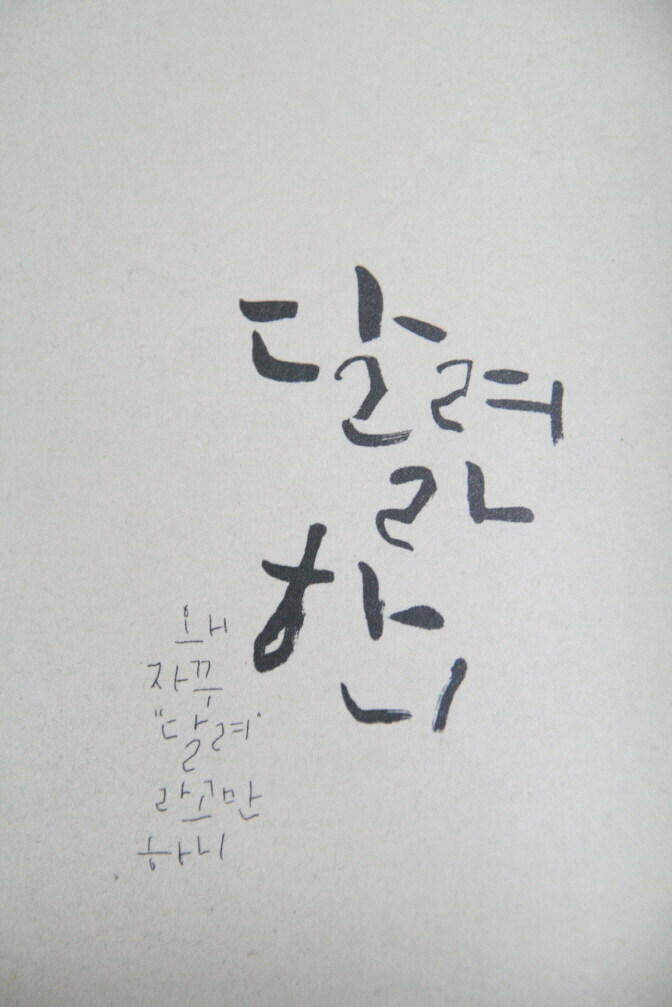 달려
라
하니
왜
자꾸
"달려"
라고만
하니